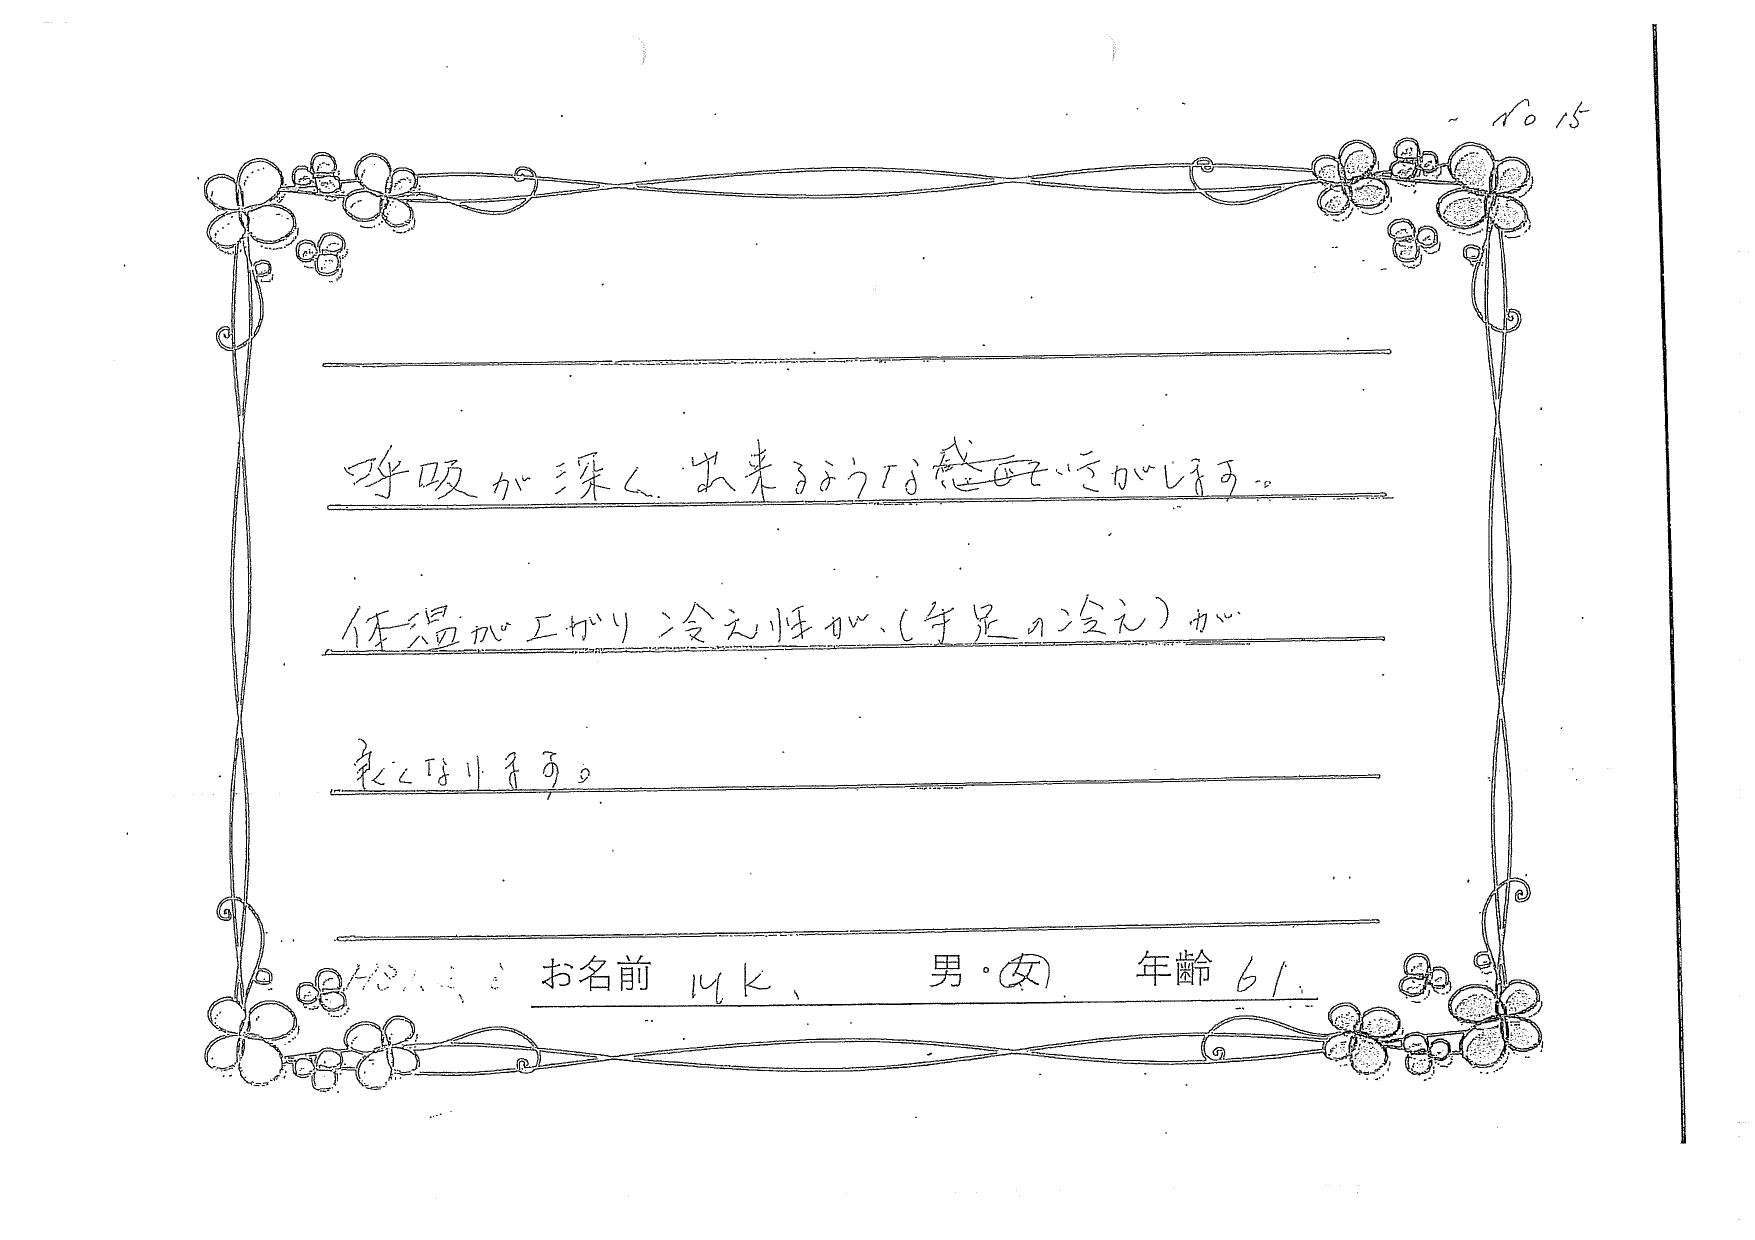 No 15
呼吸が深く出来るような感じでいきがします。
体温が上がり冷え性が、(手足の冷え)が
良くなります。
お名前 M K、 男・女 年齢 61.